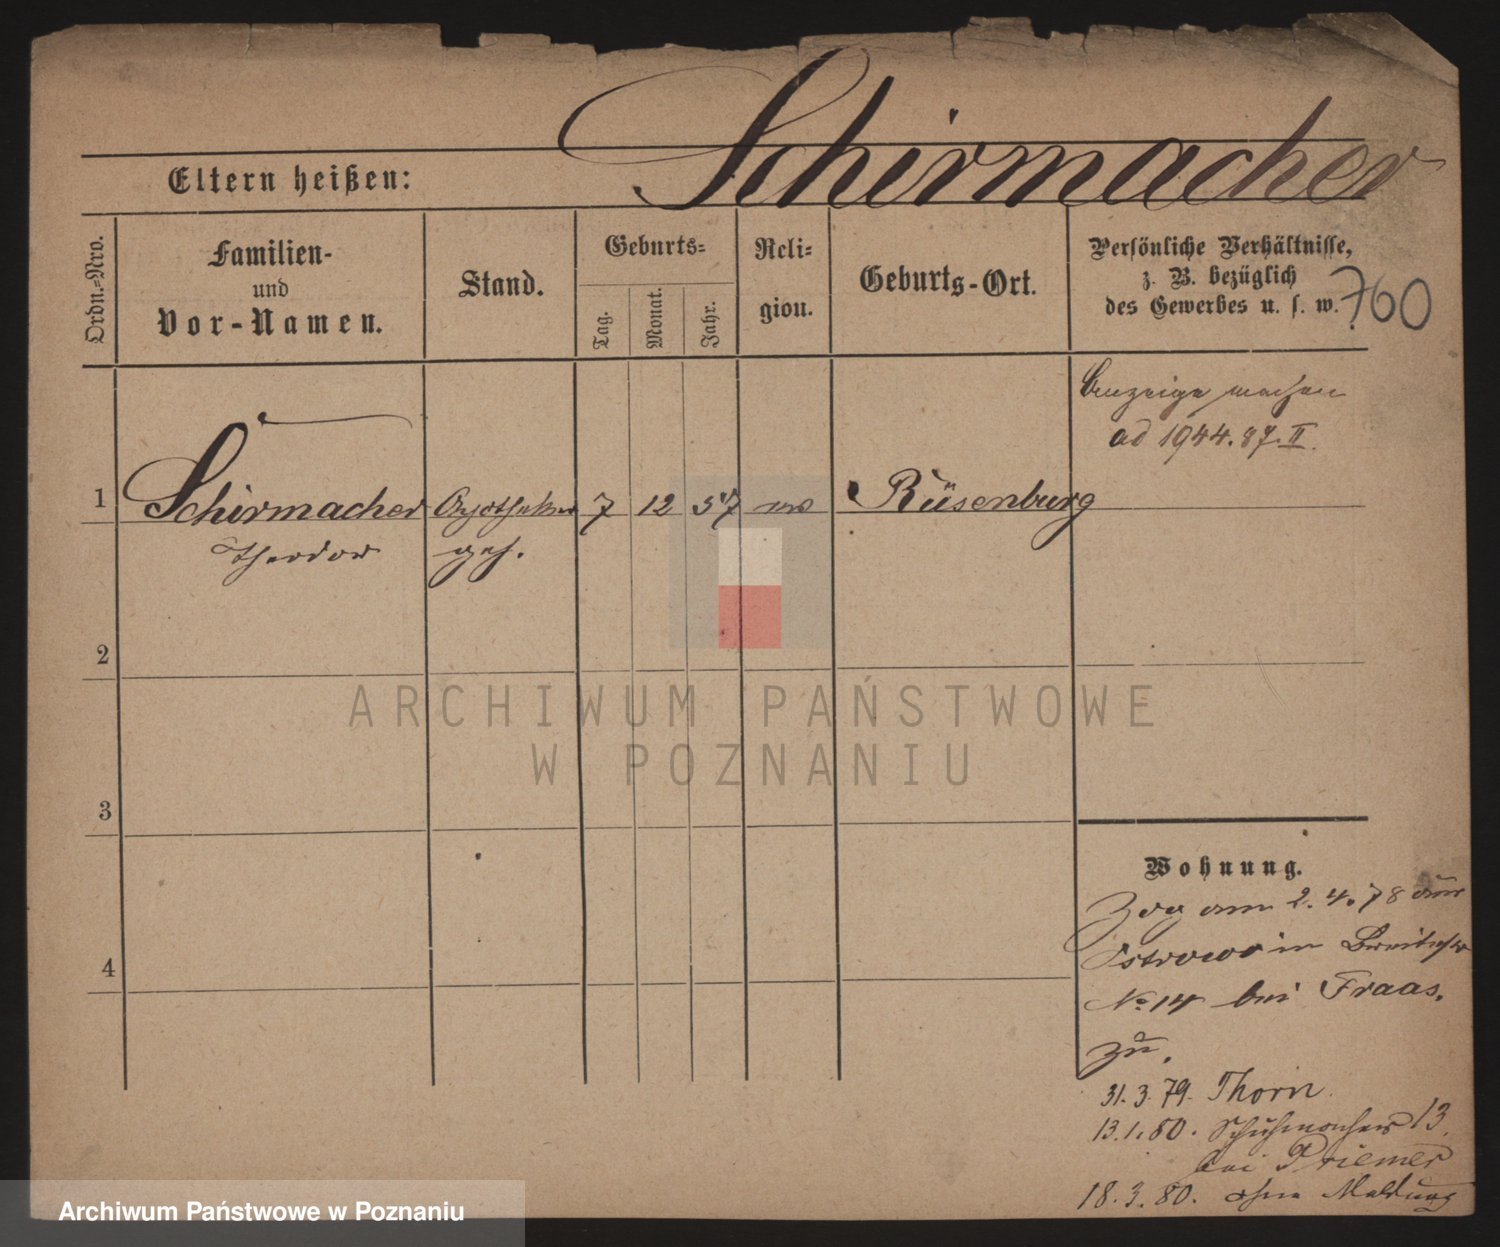 Schirmacher
Eltern heißen:
Ordn.=Nro.
Familien-
und
Vor-Namen.
Stand.
Geburts=
Tag.
Monat.
Jahr.
Reli=
gion.
Geburts-Ort.
Persönliche Verhältnisse,
z. B. bezüglich
des Gewerbes u. s. w.
760
Anzeige machen
ad 1944.87.II.
1
Schirmacher
Theodor
Apotheker
geh.
7 12 57 ev
Rüsenburg
2
3
4
Wohnung.
Zog am 2.4.78 aus
Ostrowo in Breitestr
No 14 bei Fraas.
zu.
31.3.79. Thorn.
13.1.80. Schuhmacher 13.
bei Priemer
18.3.80. ohne Meldung
ARCHIWUM PAŃSTWOWE
W POZNANIU
Archiwum Państwowe w Poznaniu